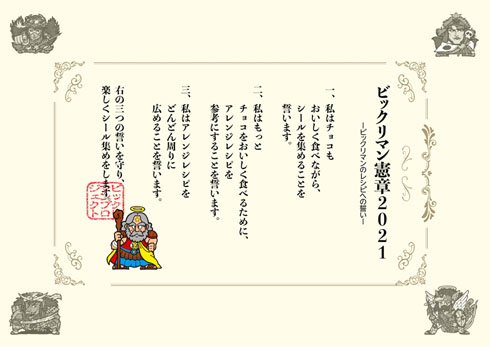 ビックリマン憲章2021
ービックリマンのレシピへの誓いー
一、私はチョコも
おいしく食べながら、
シールを集めることを
誓います。
二、私はもっと
チョコをおいしく食べるために、
アレンジレシピを
参考にすることを誓います。
三、私はアレンジレシピを
どんどん周りに
広めることを誓います。
右の三つの誓いを守り、
楽しくシール集めをします。